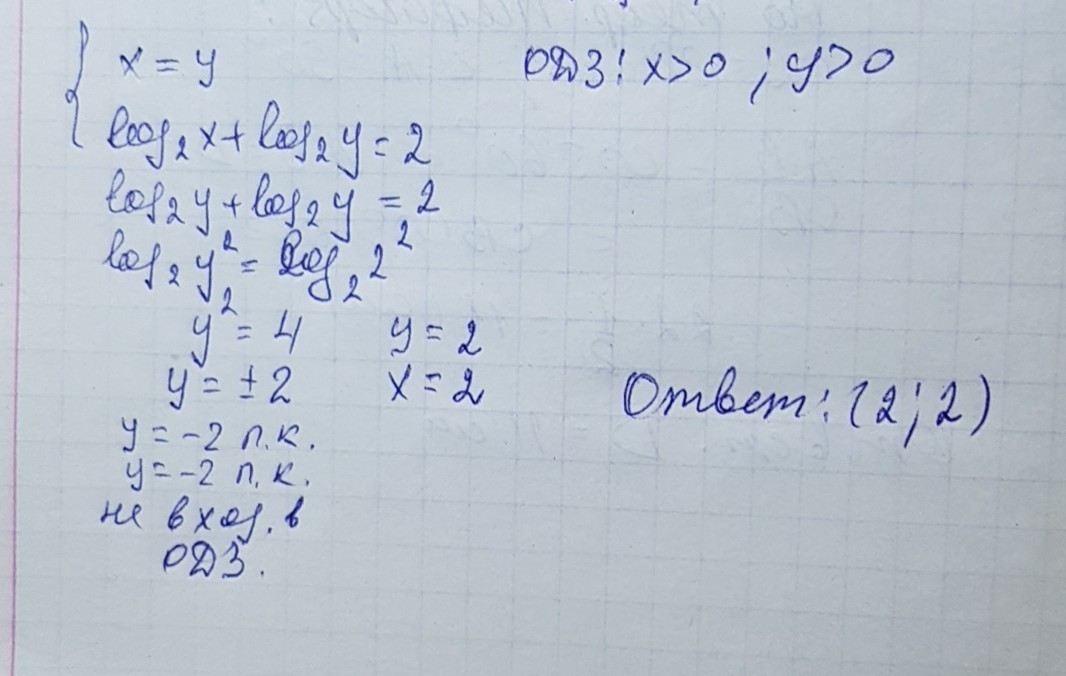 x = y ОДЗ: x>0 ; y>0
log₂x + log₂y = 2
log₂y + log₂y = 2
log₂y² = log₂2²
y² = 4 y = 2
y = ±2 x = 2
Ответ: (2; 2)
y = -2 п.к.
y = -2 п.к.
не вход. в
ОДЗ.